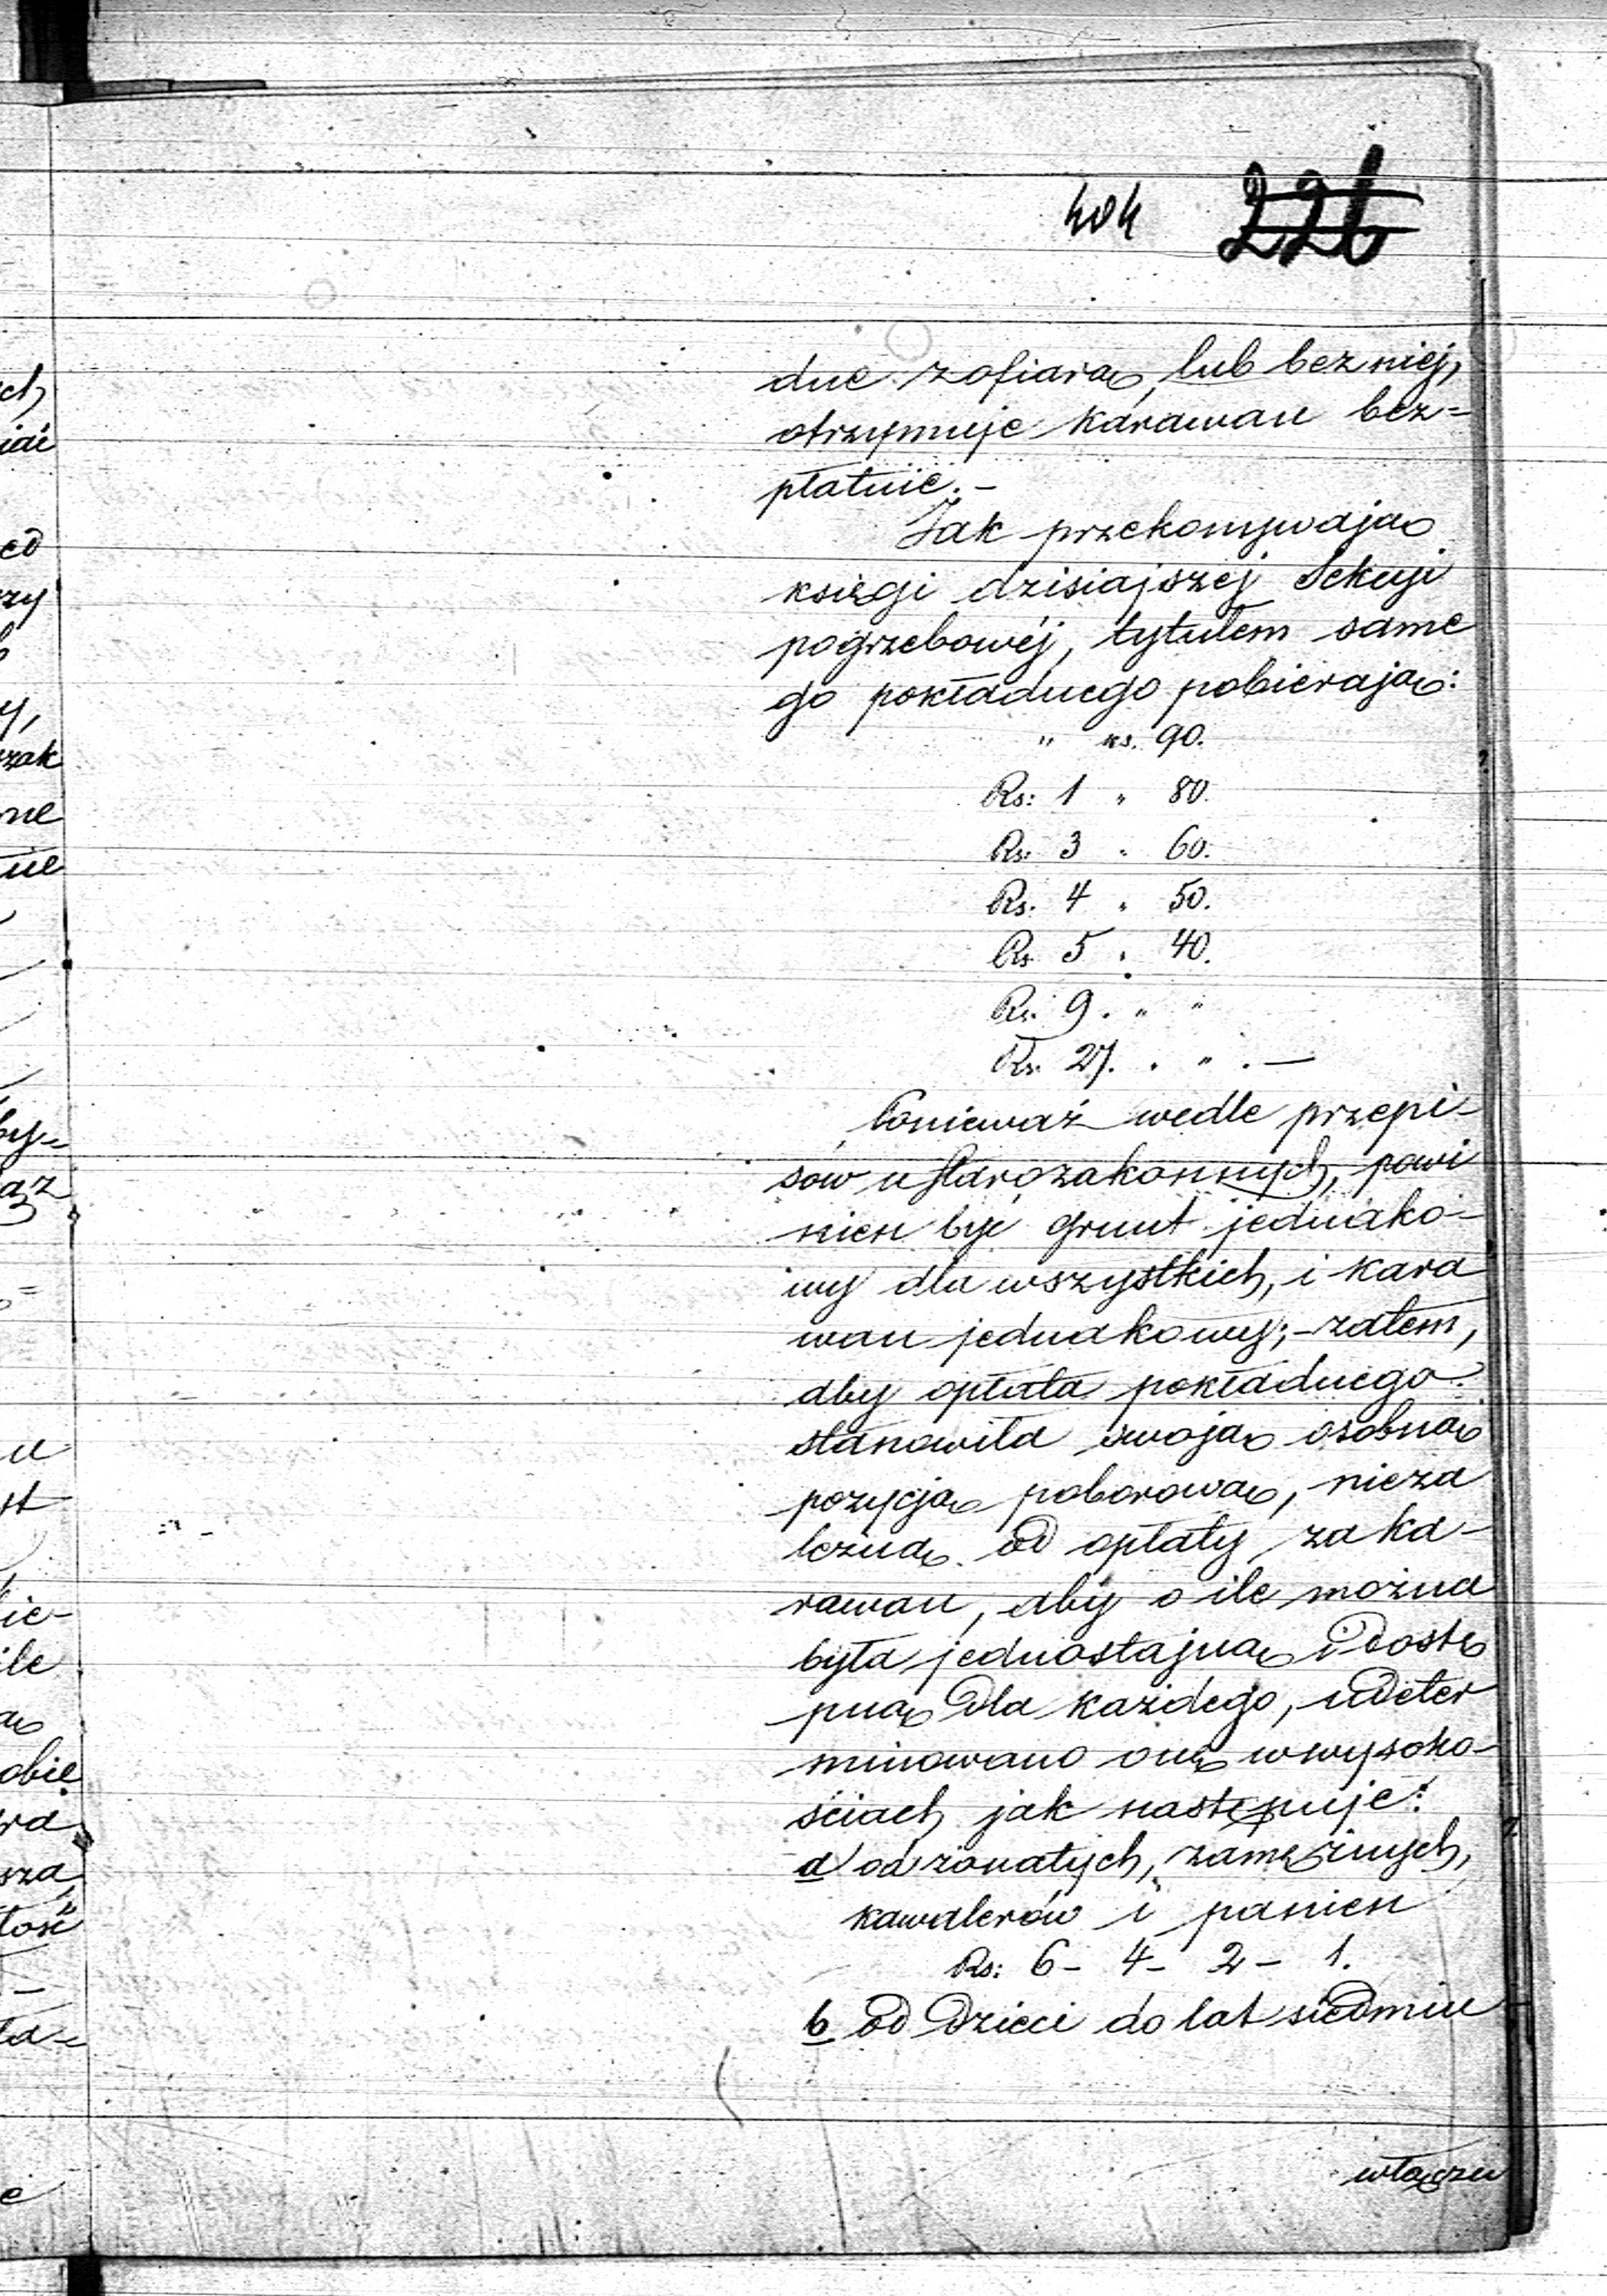 404 226
dne z ofiarą, lub bez niej,
otrzymuje karawan bez=
płatnie. –
Jak przekonywają
księgi dzisiajszej Sekcyi
pogrzebowéj, tytułem same
go pokładnego pobierają:
" ks. 90.
Rs: 1 " 80.
Rs: 3 " 60.
Rs. 4 " 50.
Rs. 5 " 40.
Rs. 9. " "
Rs. 27. " " . —
Ponieważ wedle przepi-
sów u starozakonnych, powi
nien być grunt jednako-
wy dla wszystkich, i kara
wan jednakowy; – zatem,
aby opłata pokładnego
stanowiła swoją osobną
pozycją poborową, nieza
leżną od opłaty za ka-
rawan, aby o ile można
była jednostajną i dostę
pną dla każdego, udeter
minowano onę w wysoko-
ściach jak następuje:
a od żonatych, zamężnych,
kawalerów i panien
Rs: 6 – 4 – 2 – 1.
b od dzieci do lat siedmiu
włączn
ch
iać
ed
rzy
y,
szak
ne
nie
by=
aż
u
st
bie-
ile
obie
wa
sza,
łość
ła=
e